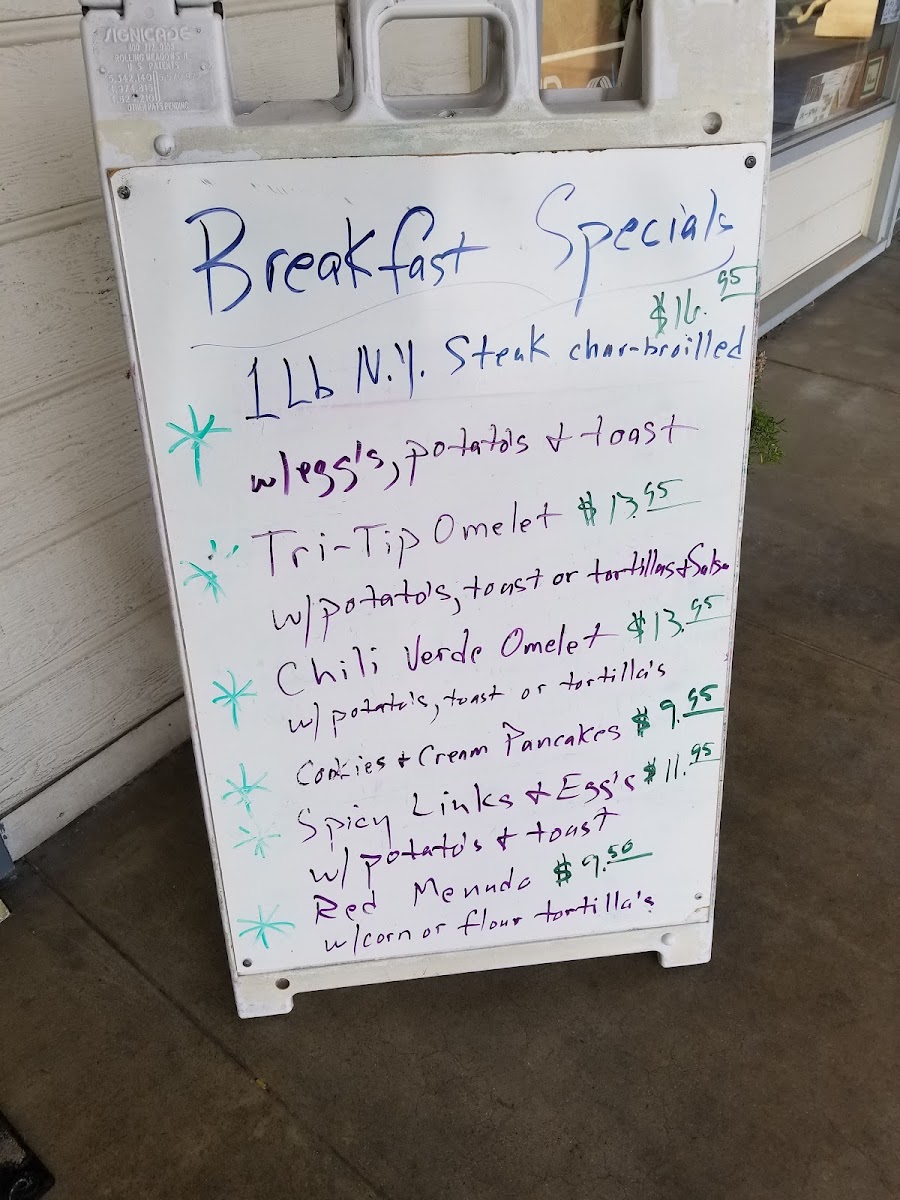 SIGNICADE
ROLLING MEADOWS IL
U.S. PATENTS
OTHER PATS PENDING
Breakfast Specials
$16.95
1 Lb N.Y. Steak char-broilled
w/egg's, potato's & toast
Tri-Tip Omelet $13.95
w/potato's, toast or tortillas & Salsa
Chili Verde Omelet $13.95
w/ potato's, toast or tortilla's
Cookies & Cream Pancakes $9.95
Spicy Links & Egg's $11.95
w/ potato's & toast
Red Menudo $9.50
w/corn or flour tortilla's